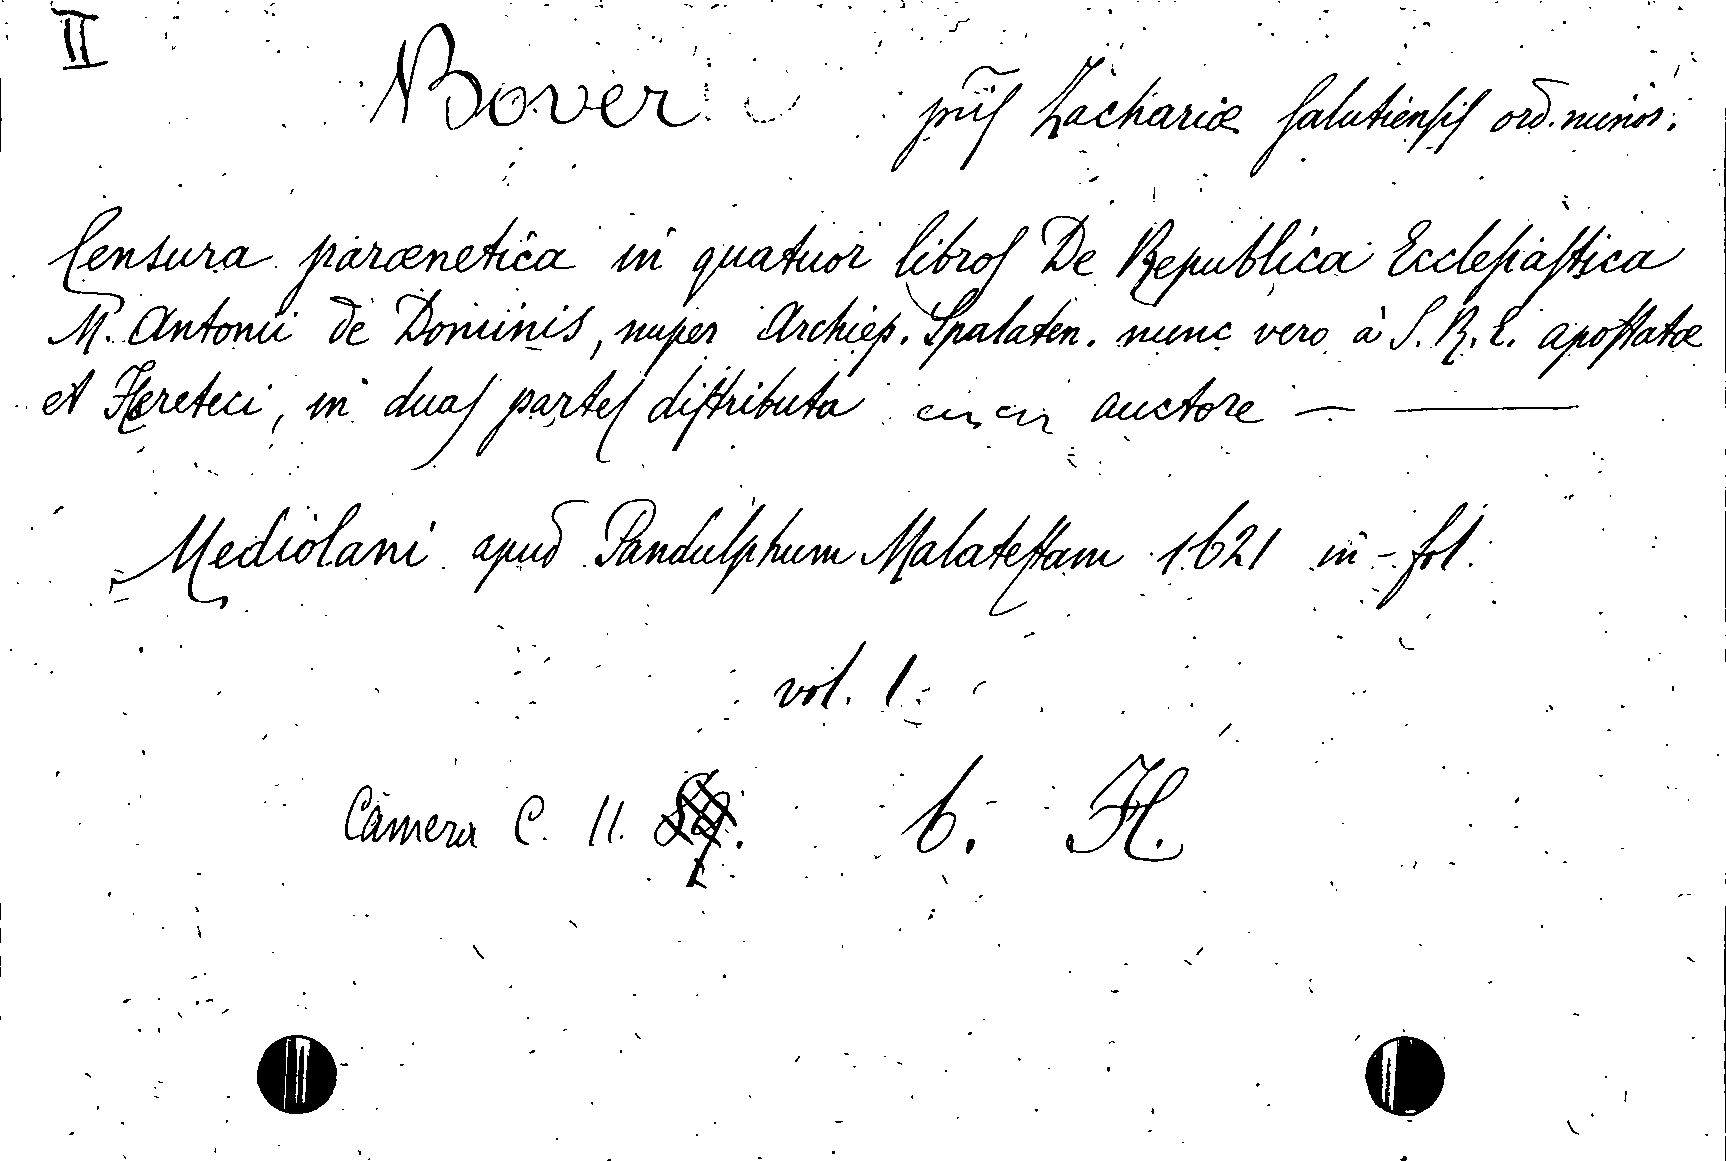 II
Bover pñis Zachariæ Salutiensis ord. minor.
Censura parænetica in quatuor libros De Republica Ecclesiastica
M. Antonii de Dominis, nuper Archiep. Spalaten. nunc vero à S. R. E. apostatæ
et Hereteci, in duas partes distributa auctore — ——
Mediolani apud Pandulphum Malatestam 1621 in-fol.
vol. 1
Camera C. 11. 6. H.